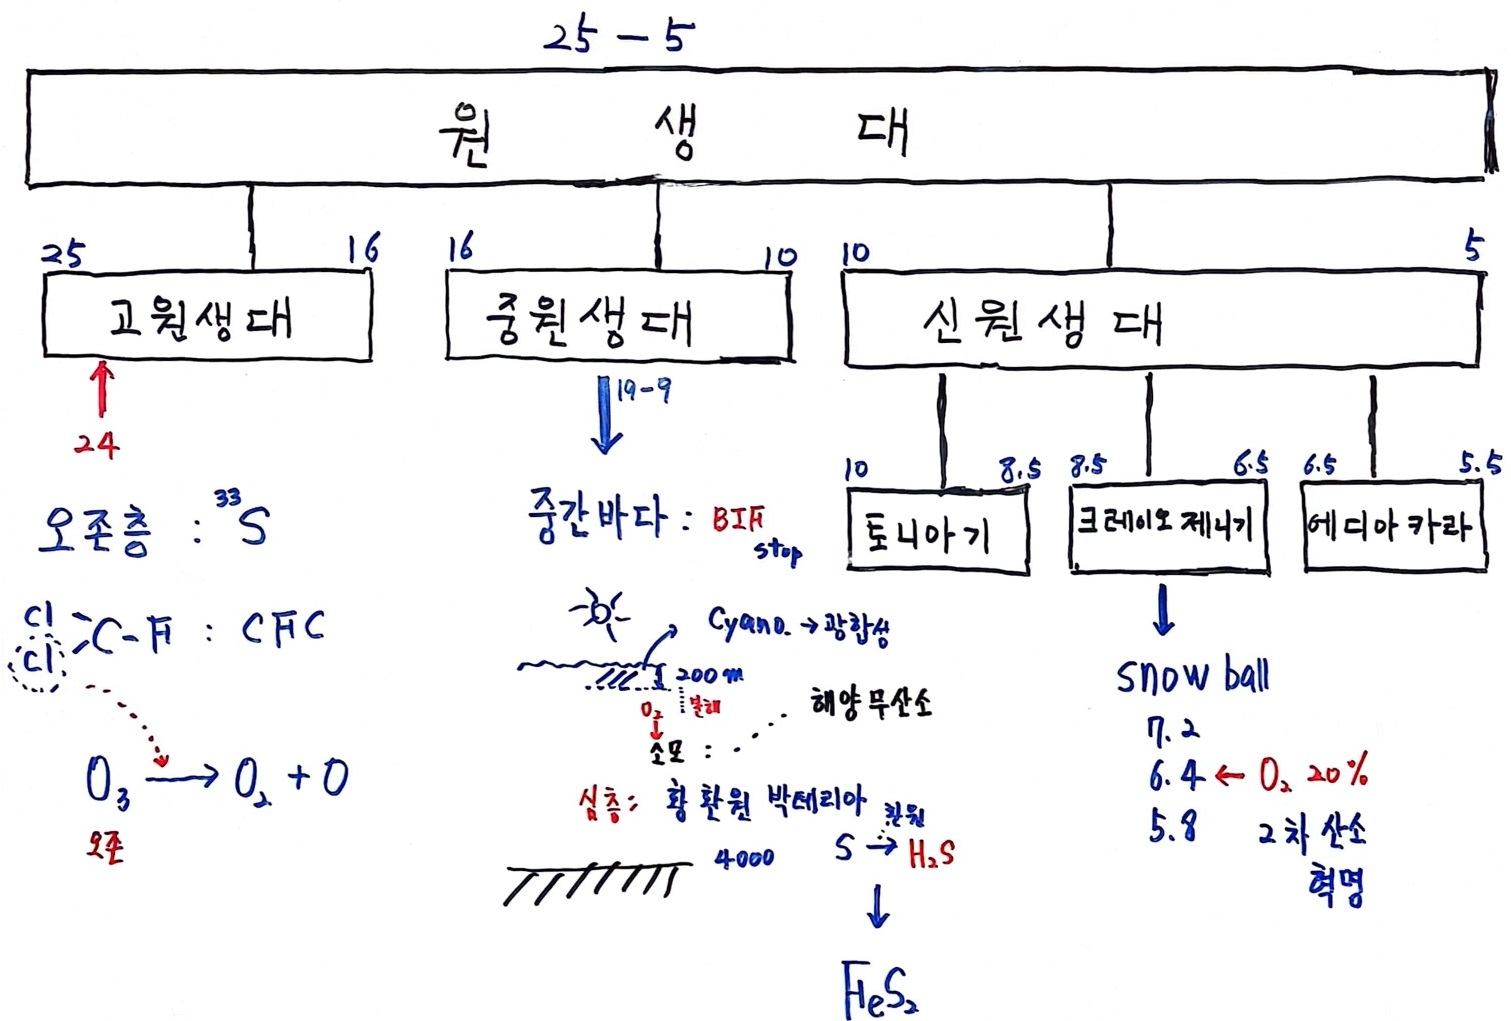 25 - 5
원 생 대
25 16 16 10 10 5
고원생대 중원생대 신원생대
24
19-9
10 8.5 8.5 6.5 6.5 5.5
토니아기 크레이오제니기 에디아카라
오존층 : ³³S
Cl
Cl
C-F : CFC
O₃ → O₂ + O
오존
중간바다 : BIF
stop
Cyano. → 광합성
200m
O₂
분해
소모 :
해양 무산소
심층 : 황 환원 박테리아
환원
S → H₂S
4000
FeS₂
snow ball
7.2
6.4 ← O₂ 20%
5.8 2차 산소
혁명